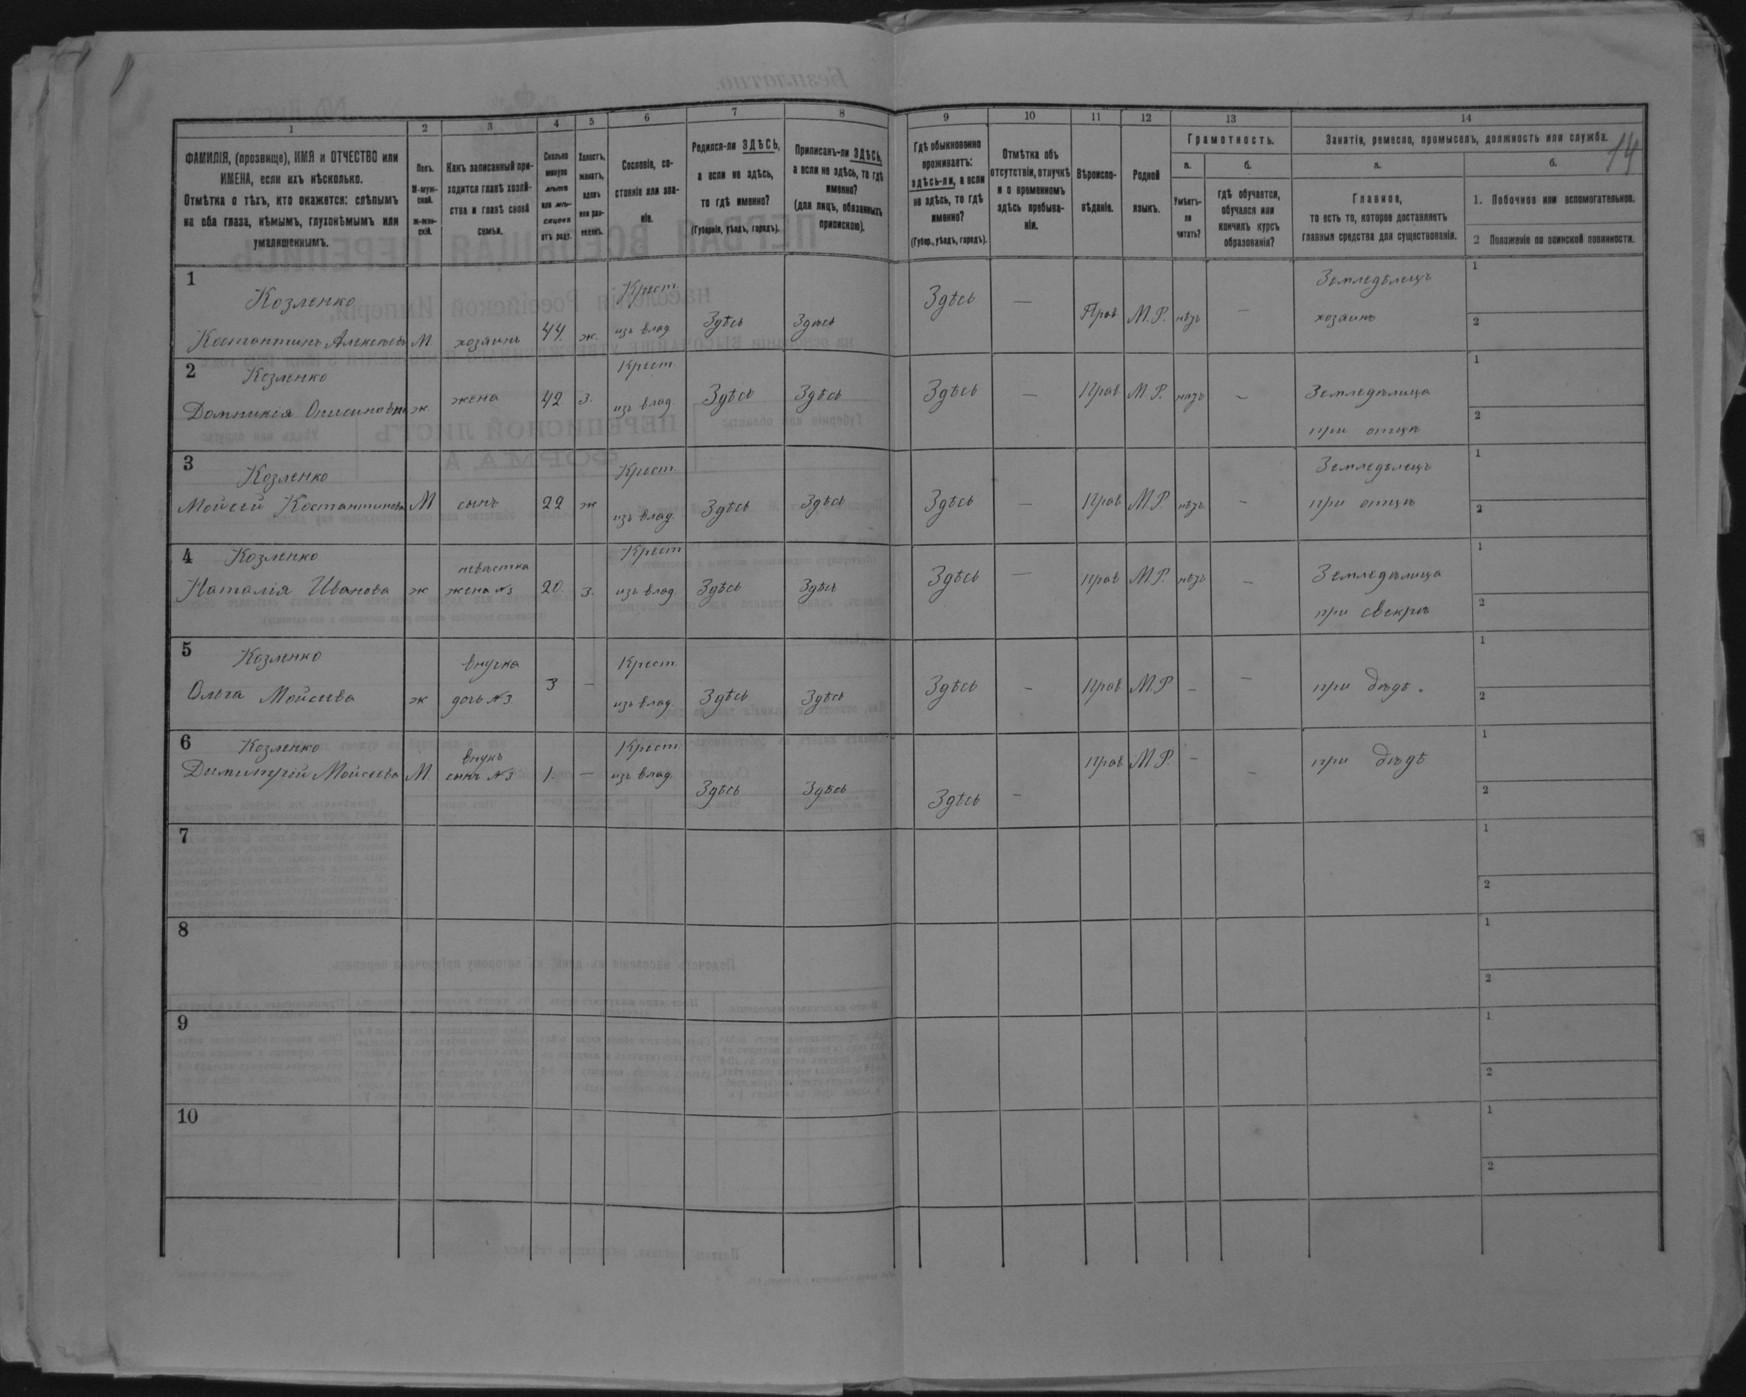 14
1 2 3 4 5 6 7 8 9 10 11 12 13 14
ФАМИЛІЯ, (прозвище), ИМЯ и ОТЧЕСТВО или
ИМЕНА, если ихъ нѣсколько.
Отмѣтка о тѣхъ, кто окажется: слѣпымъ
на оба глаза, нѣмымъ, глухонѣмымъ или
умалишеннымъ.
Полъ.
М-муж-
ской.
Ж-жен-
скій.
Какъ записанный при-
ходится главѣ хозяй-
ства и главѣ своей
семьи.
Сколько
минуло
лѣтъ
или мѣ-
сяцевъ
отъ роду.
Холостъ,
женатъ,
вдовъ
или раз-
веденъ.
Сословіе, со-
стояніе или зва-
ніе.
Родился-ли ЗДѢСЬ,
а если не здѣсь,
то гдѣ именно?
(Губернія, уѣздъ, городъ).
Приписанъ-ли ЗДѢСЬ,
а если не здѣсь, то гдѣ
именно?
(для лицъ, обязанныхъ
припискою).
Гдѣ обыкновенно
проживаетъ:
здѣсь-ли, а если
не здѣсь, то гдѣ
именно?
(Губер., уѣздъ, городъ).
Отмѣтка объ
отсутствіи, отлучкѣ
и о временномъ
здѣсь пребыва-
ніи.
Вѣроиспо-
вѣданіе.
Родной
языкъ.
Грамотность.
а.
Умѣетъ-
ли
читать?
б.
гдѣ обучается,
обучался или
кончилъ курсъ
образованія?
Занятіе, ремесло, промыселъ, должность или служба.
а.
Главное,
то есть то, которое доставляетъ
главныя средства для существованія.
б.
1. Побочное или вспомогательное.
2 Положеніе по воинской повинности.
1
Козленко
Костантинъ Алексѣевъ М хозяинъ 44. ж. Крест.
изъ влад. Здѣсь Здѣсь Здѣсь — Прав М.Р. нѣтъ — Земледѣлецъ
хозяинъ
1
2
2
Козленко
Домникія Онисимовна ж. жена 42 з. Крест
изъ влад. Здѣсь Здѣсь Здѣсь — Прав М.Р. нѣтъ — Земледѣлица
при отцѣ
1
2
3
Козленко
Мойсей Костантиновъ М сынъ 22 ж Крест
изъ влад. Здѣсь Здѣсь Здѣсь — Прав М.Р. нѣтъ — Земледѣлецъ
при отцѣ
1
2
4
Козленко
Наталія Иванова ж невѣстка
жена №3 20. з. Крест
изъ влад. Здѣсь Здѣсь Здѣсь — прав М.Р. нѣтъ — Земледѣлица
при свекрѣ
1
2
5
Козленко
Ольга Мойсеева ж внучка
дочь №3 3 — Крест.
изъ влад. Здѣсь Здѣсь Здѣсь — Прав М.Р — — при дѣдѣ.
1
2
6
Козленко
Димитрій Мойсеевъ М. внукъ
сынъ №3 1. — Крест.
изъ влад. Здѣсь Здѣсь Здѣсь — прав М.Р. — — при дѣдѣ
1
2
7
1
2
8
1
2
9
1
2
10
1
2